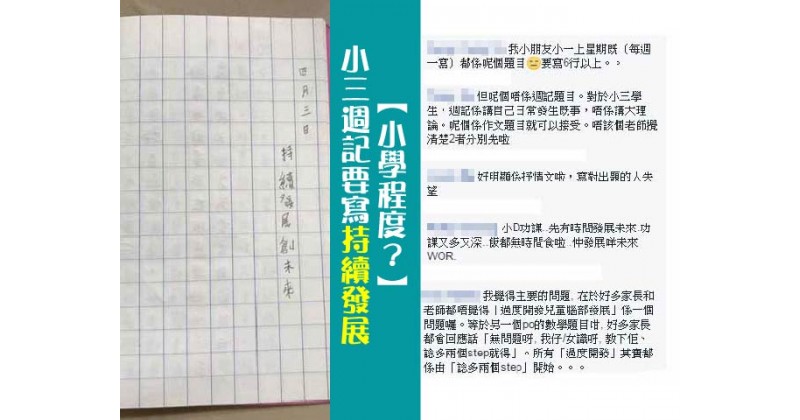 四月三日
持續發展創未來
【小學程度？】
小三週記要寫持續發展
我小朋友小一上星期既（每週
一寫）都係呢個題目😑要寫6行以上。>
但呢個唔係週記題目。對於小三學
生，週記係講自己日常發生既事，唔係講大理
論。呢個係作文題目就可以接受。唔該個老師攪
清楚2者分別先啦
好明顯係抒情文啦，寫對出題的人失
望
小D功課..先有時間發展未來..功
課又多又深..飯都無時間食啦..仲發展咩未來
WOR.
我覺得主要的問題, 在於好多家長和
老師都唔覺得「過度開發兒童腦部發展」係一個
問題囉。等於另一個po的數學題目咁, 好多家長
都會回應話「無問題呀, 我仔/女識呀, 教下佢、
諗多兩個step就得」。所有「過度開發」其實都
係由「諗多兩個step」開始。。。